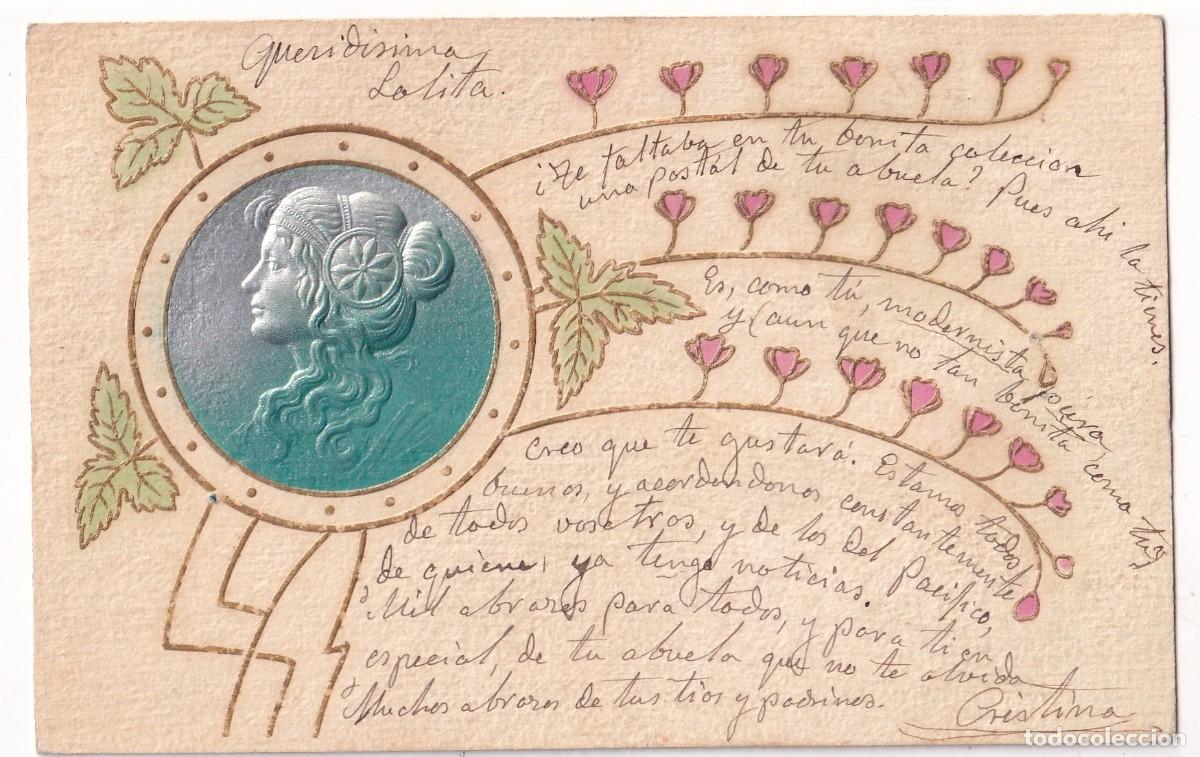 Queridisima
Lolita.
¿Te faltaba en tu bonita coleccion
una postal de tu abuela? Pues ahi la tienes.
Es, como tú, modernista pura,
y (aun que no tan bonita como tu)
creo que te gustará. Estamos todos
buenos, y acordandonos constantemente
de todos vosotros, y de los del Pacifico,
de quiene, ya tengo noticias.
Mil abrazos para todos, y para ti en
especial, de tu abuela que no te olvida
Muchos abrazos de tus tios y padrinos.
Cristina
todocoleccion